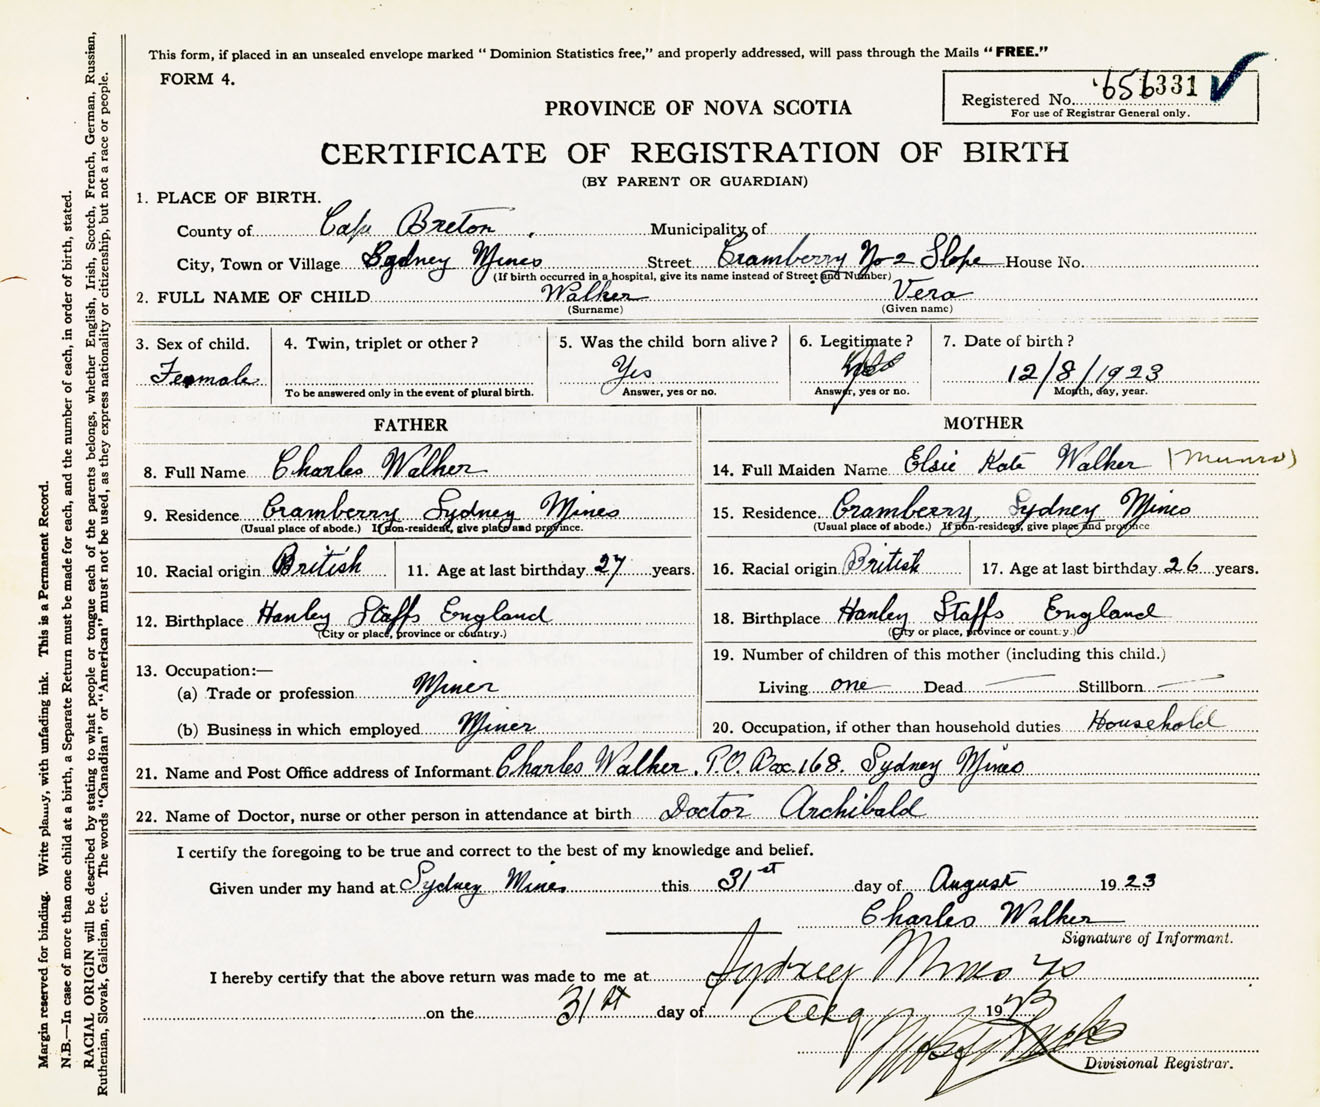 This form, if placed in an unsealed envelope marked “ Dominion Statistics free,” and properly addressed, will pass through the Mails “ FREE.”
FORM 4.
Registered No. 656331
For use of Registrar General only.
PROVINCE OF NOVA SCOTIA
CERTIFICATE OF REGISTRATION OF BIRTH
(BY PARENT OR GUARDIAN)
1. PLACE OF BIRTH.
County of Cape Breton. Municipality of
City, Town or Village Sydney Mines Street Cramberry No 2 Slope House No.
(If birth occurred in a hospital, give its name instead of Street and Number)
2. FULL NAME OF CHILD Walker Vera
(Surname) (Given name)
3. Sex of child. 4. Twin, triplet or other? 5. Was the child born alive? 6. Legitimate? 7. Date of birth?
Female Yes Yes 12/8/1923
To be answered only in the event of plural birth. Answer, yes or no. Answer, yes or no. Month, day, year.
FATHER MOTHER
8. Full Name Charles Walker 14. Full Maiden Name Elsie Kate Walker (Munro)
9. Residence Cramberry Sydney Mines 15. Residence Cramberry Sydney Mines
(Usual place of abode.) If non-resident, give place and province. (Usual place of abode.) If non-resident, give place and province
10. Racial origin British 11. Age at last birthday 27 years. 16. Racial origin British 17. Age at last birthday 26 years.
12. Birthplace Hanley Staffs England 18. Birthplace Hanley Staffs England
(City or place, province or country.) (City or place, province or country.)
19. Number of children of this mother (including this child.)
13. Occupation:—
(a) Trade or profession Miner Living one Dead — Stillborn —
(b) Business in which employed Miner 20. Occupation, if other than household duties Household
21. Name and Post Office address of Informant Charles Walker. P.O. Box. 168. Sydney Mines
22. Name of Doctor, nurse or other person in attendance at birth Doctor Archibald
I certify the foregoing to be true and correct to the best of my knowledge and belief.
Given under my hand at Sydney Mines this 31st day of August 1923
Charles Walker
Signature of Informant.
I hereby certify that the above return was made to me at Sydney Mines
on the 31st day of Aug 1923
Divisional Registrar.
Margin reserved for binding. Write plainly, with unfading ink. This is a Permanent Record.
N.B.—In case of more than one child at a birth, a Separate Return must be made for each, and the number of each, in order of birth, stated.
RACIAL ORIGIN will be described by stating to what people or tongue each of the parents belongs, whether English, Irish, Scotch, French, German, Russian,
Ruthenian, Slovak, Galician, etc. The words “Canadian” or “American” must not be used, as they express nationality or citizenship, but not a race or people.